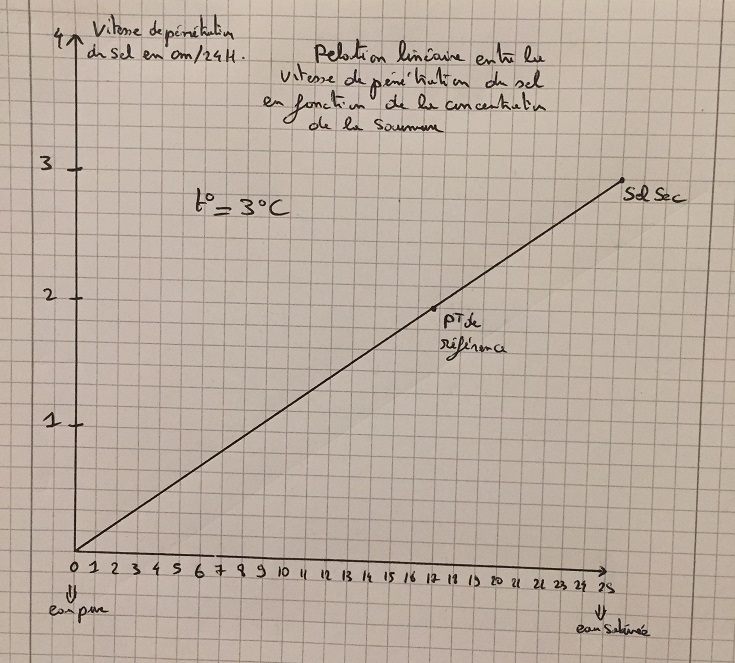 4
Vitesse de pénétration
du sel en cm/24H.
Relation linéaire entre la
vitesse de pénétration du sel
en fonction de la concentration
de la saumure
3
t° = 3°C
Sel Sec
2
PT de
référence
1
0 1 2 3 4 5 6 7 8 9 10 11 12 13 14 15 16 17 18 19 20 21 22 23 24 25
eau pure
eau saturée